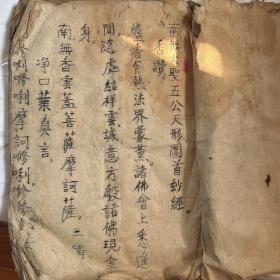 南無大聖五公天形圖首妙經
香讚
爐香乍熱法界蒙薰諸佛會上悉遙
聞隨處結祥雲誠意方殷諸佛現全
身
南無香雲蓋菩薩摩訶薩 三
净口業真言
修唎唎摩訶修唎修